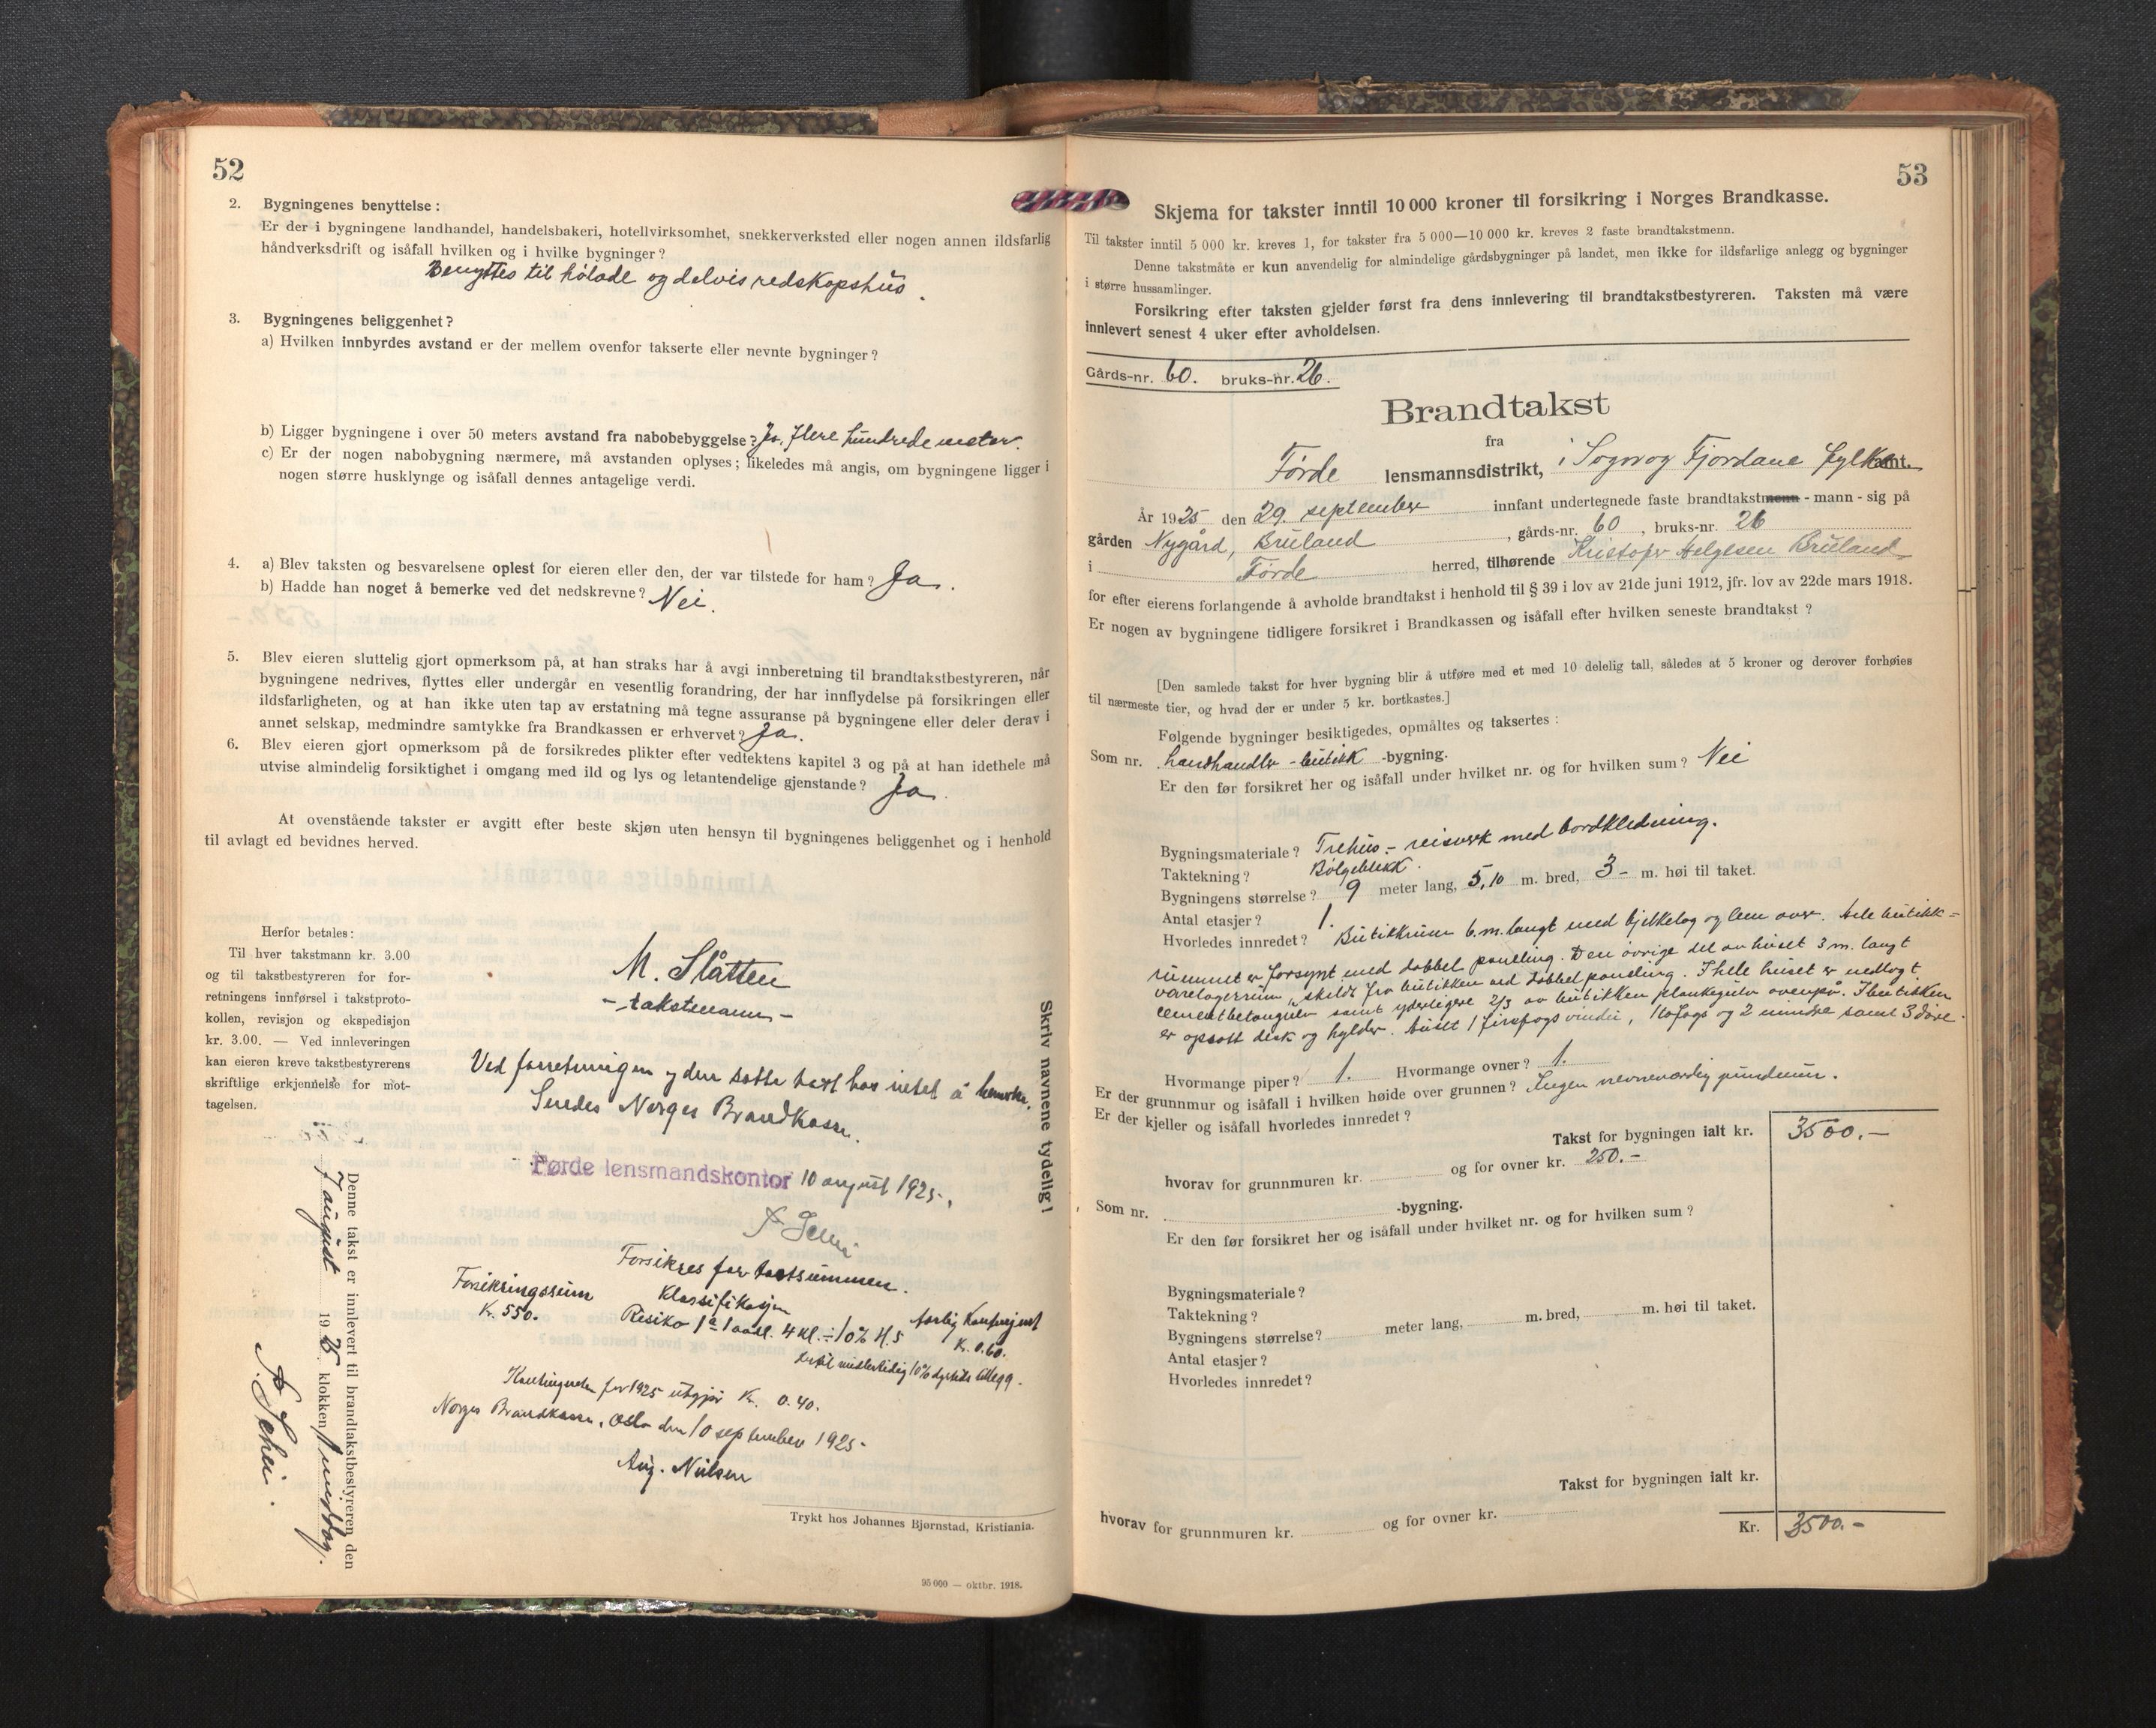 52
2. Bygningenes benyttelse:
Er der i bygningene landhandel, handelsbakeri, hotellvirksomhet, snekkerverksted eller nogen annen ildsfarlig
håndverksdrift og isåfall hvilken og i hvilke bygninger?
Benyttes til hölade og delvis redskapshus.
3. Bygningenes beliggenhet?
a) Hvilken innbyrdes avstand er der mellem ovenfor takserte eller nevnte bygninger?
b) Ligger bygningene i over 50 meters avstand fra nabobebyggelse? Ja, flere hundrede meter.
c) Er der nogen nabobygning nærmere, må avstanden oplyses; likeledes må angis, om bygningene ligger i
nogen større husklynge og isåfall dennes antagelige verdi.
4. a) Blev taksten og besvarelsene oplest for eieren eller den, der var tilstede for ham? Ja.
b) Hadde han noget å bemerke ved det nedskrevne? Nei.
5. Blev eieren sluttelig gjort opmerksom på, at han straks har å avgi innberetning til brandtakstbestyreren, når
bygningene nedrives, flyttes eller undergår en vesentlig forandring, der har innflydelse på forsikringen eller
ildsfarligheten, og at han ikke uten tap av erstatning må tegne assuranse på bygningene eller deler derav i
annet selskap, medmindre samtykke fra Brandkassen er erhvervet? Ja.
6. Blev eieren gjort opmerksom på de forsikredes plikter efter vedtektens kapitel 3 og på at han idethele må
utvise almindelig forsiktighet i omgang med ild og lys og letantendelige gjenstande? Ja.
At ovenstående takster er avgitt efter beste skjøn uten hensyn til bygningenes beliggenhet og i henhold
til avlagt ed bevidnes herved.
Herfor betales:
Til hver takstmann kr. 3.00
og til takstbestyreren for for-
retningens innførsel i takstproto-
kollen, revisjon og ekspedisjon
kr. 3.00. — Ved innleveringen
kan eieren kreve takstbestyrerens
skriftlige erkjennelse for mot-
tagelsen.
M. Slåtten
- takstmann -
Ved forretningen og den satte takst har intet å bemerke.
Sendes Norges Brandkasse.
Førde lensmandskontor 10 august 1925.
Forsikres for takstsummen.
Forsikringssum Klassifikasjon Aarlig Kontingent
Kr. 550. Risiko 1ª 1 avd. 4 kl. ÷ 10% H.5 Kr. 0.60.
Kontingenten for 1925 utgjør Kr. 0.40.
Norges Brandkasse, Oslo den 10 september 1925.
Aug. Nielsen
Denne takst er innlevert til brandtakstbestyreren den
7 august 1925 klokken 1 middag.
Skriv navnene tydelig!
Trykt hos Johannes Bjørnstad, Kristiania.
95 000 — oktbr. 1918.
53
Skjema for takster inntil 10 000 kroner til forsikring i Norges Brandkasse.
Til takster inntil 5 000 kr. kreves 1, for takster fra 5 000—10 000 kr. kreves 2 faste brandtakstmenn.
Denne takstmåte er kun anvendelig for almindelige gårdsbygninger på landet, men ikke for ildsfarlige anlegg og bygninger
i større hussamlinger.
Forsikring efter taksten gjelder først fra dens innlevering til brandtakstbestyreren. Taksten må være
innlevert senest 4 uker efter avholdelsen.
Gårds-nr. 60. bruks-nr. 26.
Brandtakst
fra
Førde lensmannsdistrikt, i Sogn og Fjordane fylke amt.
År 1925 den 29. september innfant undertegnede faste brandtakstmenn - mann - sig på
gården Nygård, Bruland, gårds-nr. 60, bruks-nr. 26
i Førde herred, tilhørende Kristofer Helgesen Bruland
for efter eierens forlangende å avholde brandtakst i henhold til § 39 i lov av 21de juni 1912, jfr. lov av 22de mars 1918.
Er nogen av bygningene tidligere forsikret i Brandkassen og isåfall efter hvilken seneste brandtakst?
[Den samlede takst for hver bygning blir å utføre med et med 10 delelig tall, således at 5 kroner og derover forhøies
til nærmeste tier, og hvad der er under 5 kr. bortkastes.]
Følgende bygninger besiktigedes, opmåltes og taksertes:
Som nr. Landhandler - butikk -bygning.
Er den før forsikret her og isåfall under hvilket nr. og for hvilken sum? Nei
Bygningsmateriale? Trehus:- reisverk med bordkledning.
Taktekning? Bølgeblekk.
Bygningens størrelse? 9 meter lang, 5,10 m. bred, 3- m. høi til taket.
Antal etasjer? 1.
Hvorledes innredet? Butikkrum 6.m. langt med bjelkelag og lem over. Hele butikk-
rummet er forsynt med dobbel paneling. Den øvrige del av huset 3 m. langt
varelagerrum, skilds fra butikken ved dobbel paneling. I hele huset er nedlagt
cementbetongulv samt yderligere 2/3 av butikken plankegulv ovenpå. I butikken
er opsatt disk og hylder. Huset 1 firefags vindu, 1 tofags og 2 mindre samt 3 døre.
Hvormange piper? 1. Hvormange ovner? 1.
Er der grunnmur og isåfall i hvilken høide over grunnen? Ingen nevneverdig grundmur.
Er der kjeller og isåfall hvorledes innredet?
Takst for bygningen ialt kr. 3500.-
hvorav for grunnmuren kr. og for ovner kr. 250.-
Som nr. -bygning.
Er den før forsikret her og isåfall under hvilket nr. og for hvilken sum?
Bygningsmateriale?
Taktekning?
Bygningens størrelse? meter lang, m. bred, m. høi til taket.
Antal etasjer?
Hvorledes innredet?
Takst for bygningen ialt kr.
hvorav for grunnmuren kr. og for ovner kr.
Kr. 3500.-